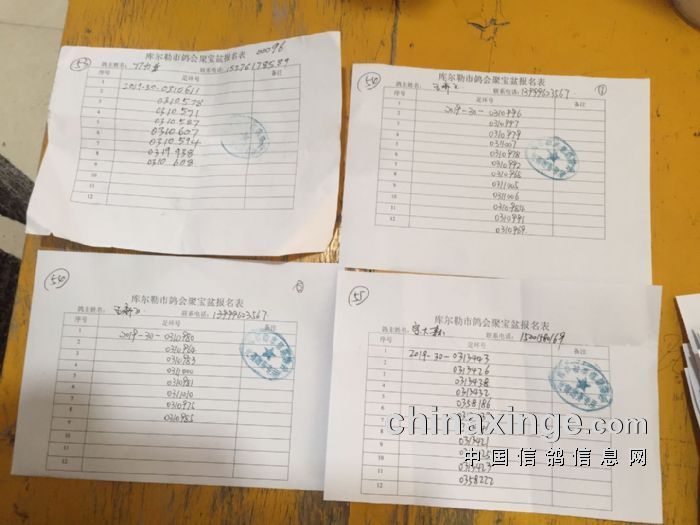 53
库尔勒市鸽会聚宝盆报名表
00096
鸽主姓名:
联系电话:15276178589
序号 足环号 备注
1 2019-30-0310611
2 0310578
3 0310571
4 0310587
5 0310607
6 0310594
7 0319938
8 0310608
9
10
11
12
540
库尔勒市鸽会聚宝盆报名表
①
鸽主姓名:
联系电话:13999623567
序号 足环号 备注
1 2019-30-0310996
2 0310997
3 0310979
4 0311007
5 0310978
6 0310992
7 0310966
8 0311005
9 0311006
10 0310984
11 0310991
12 0310969
540
库尔勒市鸽会聚宝盆报名表
②
鸽主姓名:
联系电话:13999623567
序号 足环号 备注
1 2019-30-0310980
2 0310964
3 0310983
4 0311000
5 0310981
6 0311010
7 0310975
8 0310985
9
10
11
12
55
库尔勒市鸽会聚宝盆报名表
鸽主姓名:
联系电话:
序号 足环号 备注
1 2019-30-0313443
2 0313426
3 0313438
4 0313432
5 0358186
9 0313421
10
11 0313423
12 0358222
chinaxinge.com
中国信鸽信息网